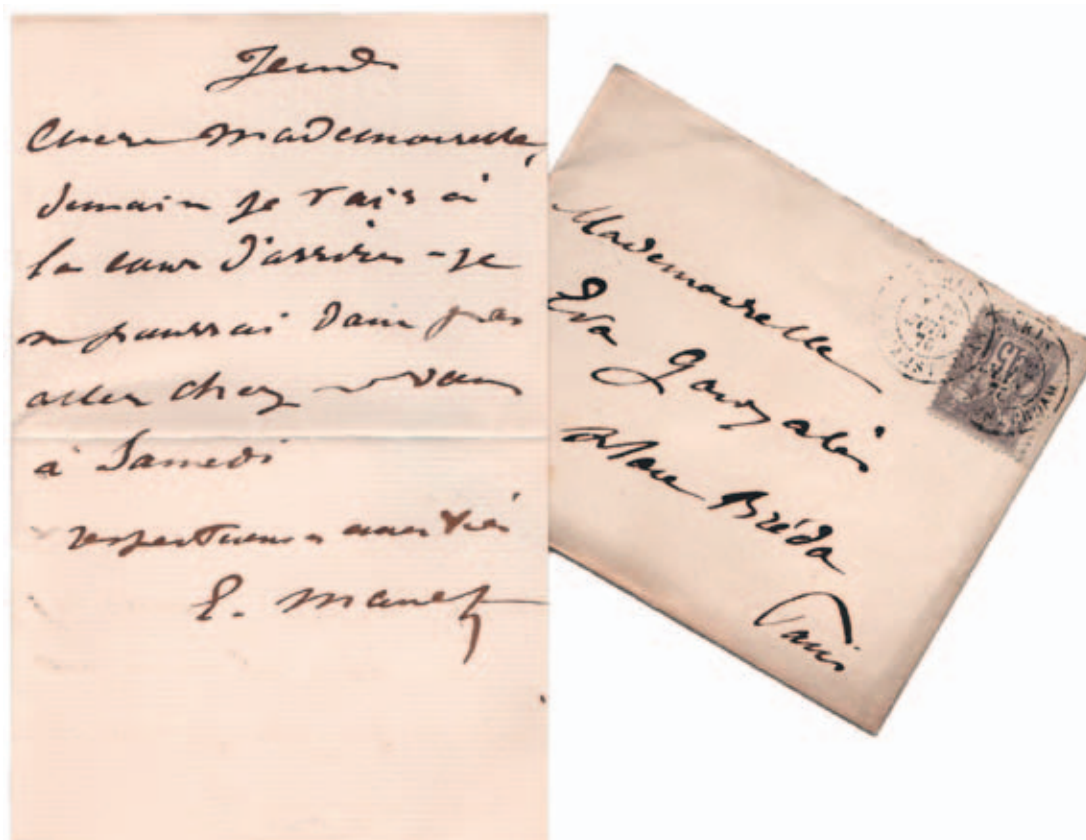 Jeudi
Chère Mademoiselle,
demain je vais à
la cour d'assises - je
ne pourrai donc pas
aller chez vous
à Samedi
respectueuses amitiés
E. Manet
Mademoiselle
Eva Gonzalès
place Bréda
Paris
PARIS
15